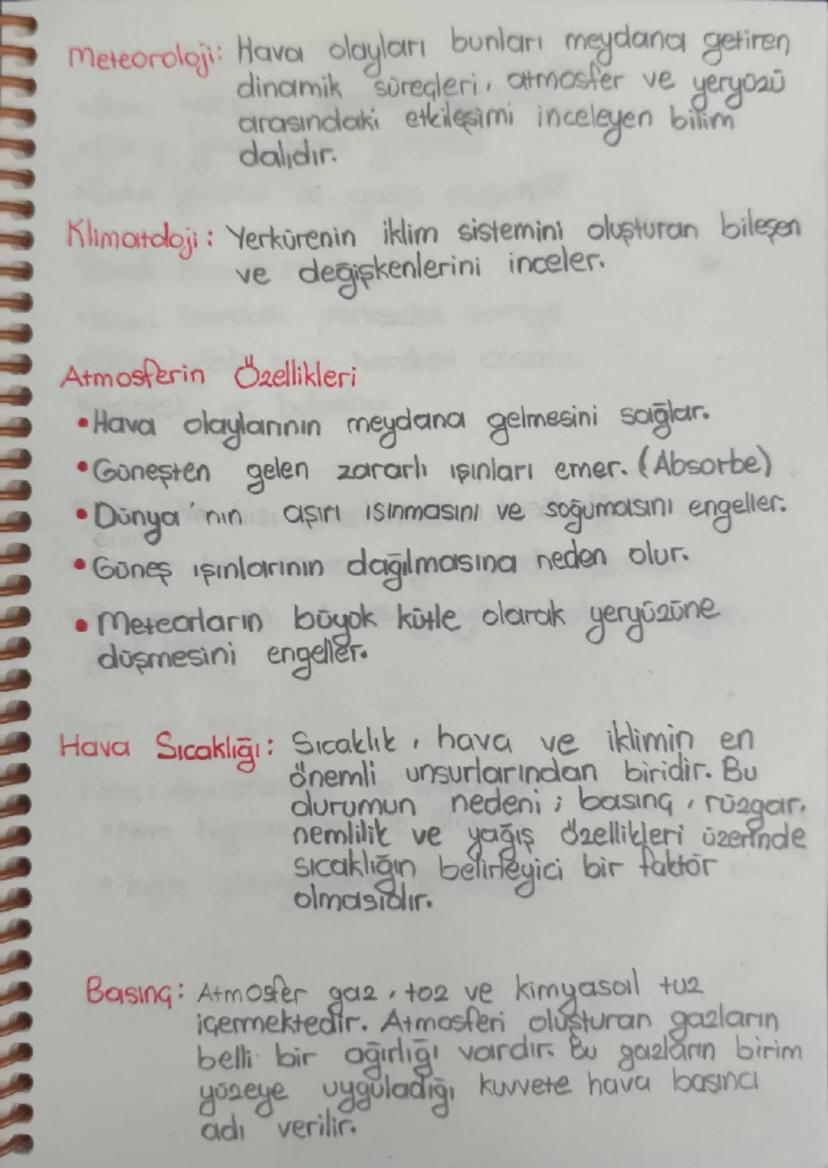 Meteoroloji: Hava olayları bunları meydana getiren
dinamik süreçleri, atmosfer ve yeryüzü
arasındaki etkileşimi inceleyen bilim
dalıdır.
Klimatoloji: Yerkürenin iklim sistemini oluşturan bileşen
ve değişkenlerini inceler.
Atmosferin Özellikleri
• Hava olaylarının meydana gelmesini sağlar.
• Güneşten gelen zararlı ışınları emer. (Absorbe)
• Dünya'nın aşırı ısınmasını ve soğumasını engeller.
• Güneş ışınlarının dağılmasına neden olur.
• Meteorların büyük kütle olarak yeryüzüne
düşmesini engeller.
Hava Sıcaklığı: Sıcaklık, hava ve iklimin en
önemli unsurlarından biridir. Bu
durumun nedeni; basınç, rüzgar,
nemlilik ve yağış özellikleri üzerinde
sıcaklığın belirleyici bir faktör
olmasıdır.
Basınç: Atmosfer gaz, toz ve kimyasal tuz
içermektedir. Atmosferi oluşturan gazların
belli bir ağırlığı vardır. Bu gazların birim
yüzeye uyguladığı kuvvete hava basıncı
adı verilir.